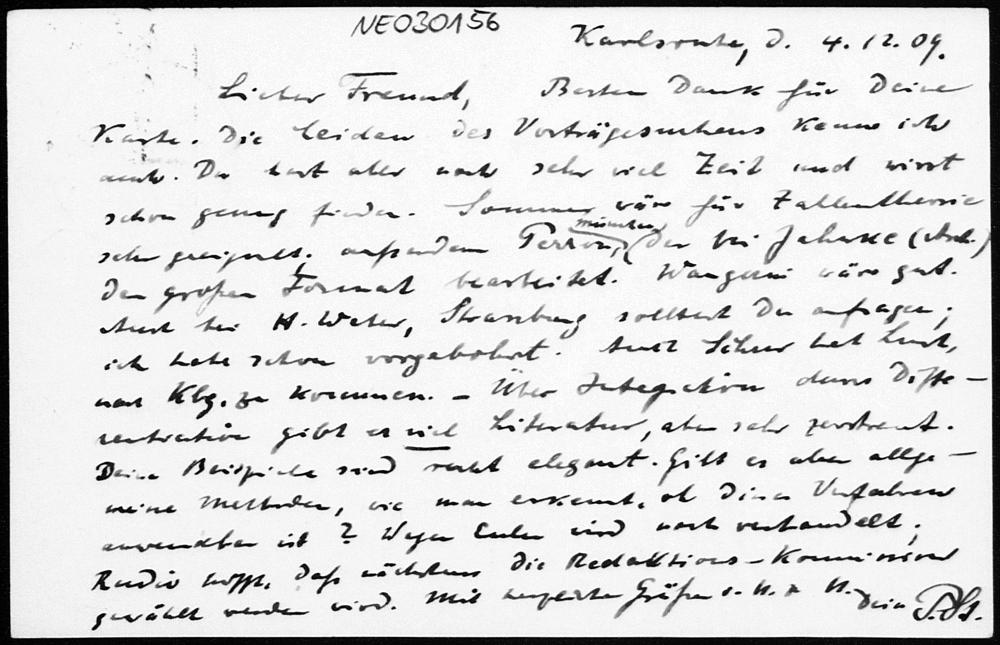 NE030156
Karlsruhe, d. 4.12.09.
Lieber Freund, Besten Dank für Deine
Karte. Die Leiden des Vorträgesuchens kenne ich
auch. Du hast aber noch sehr viel Zeit und wirst
schon genug finden. Sommer wäre für Zahlentheorie
München
sehr geeignet, außerdem Perron, (der bei Jahnke (Arch.)
den großen Fermat bearbeitet. Wangerin wäre gut.
Auch bei H. Weber, Strassburg solltest Du anfragen;
ich habe schon vorgebohrt. Auch Schur hat Lust,
nach Kbg. zu kommen. – Über Integration durch Diffe-
rentiation gibt es viel Literatur, aber sehr zerstreut.
Deine Beispiele sind recht elegant. Gibt es aber allge-
meine Methoden, wie man erkennt, ob dieses Verfahren
anwendbar ist? Wegen Euler wird noch verhandelt;
Rudio hofft, daß nächstens die Redaktions-Kommission
gewählt werden wird. Mit Grüßen v. H. z. H.
Dein P. St.